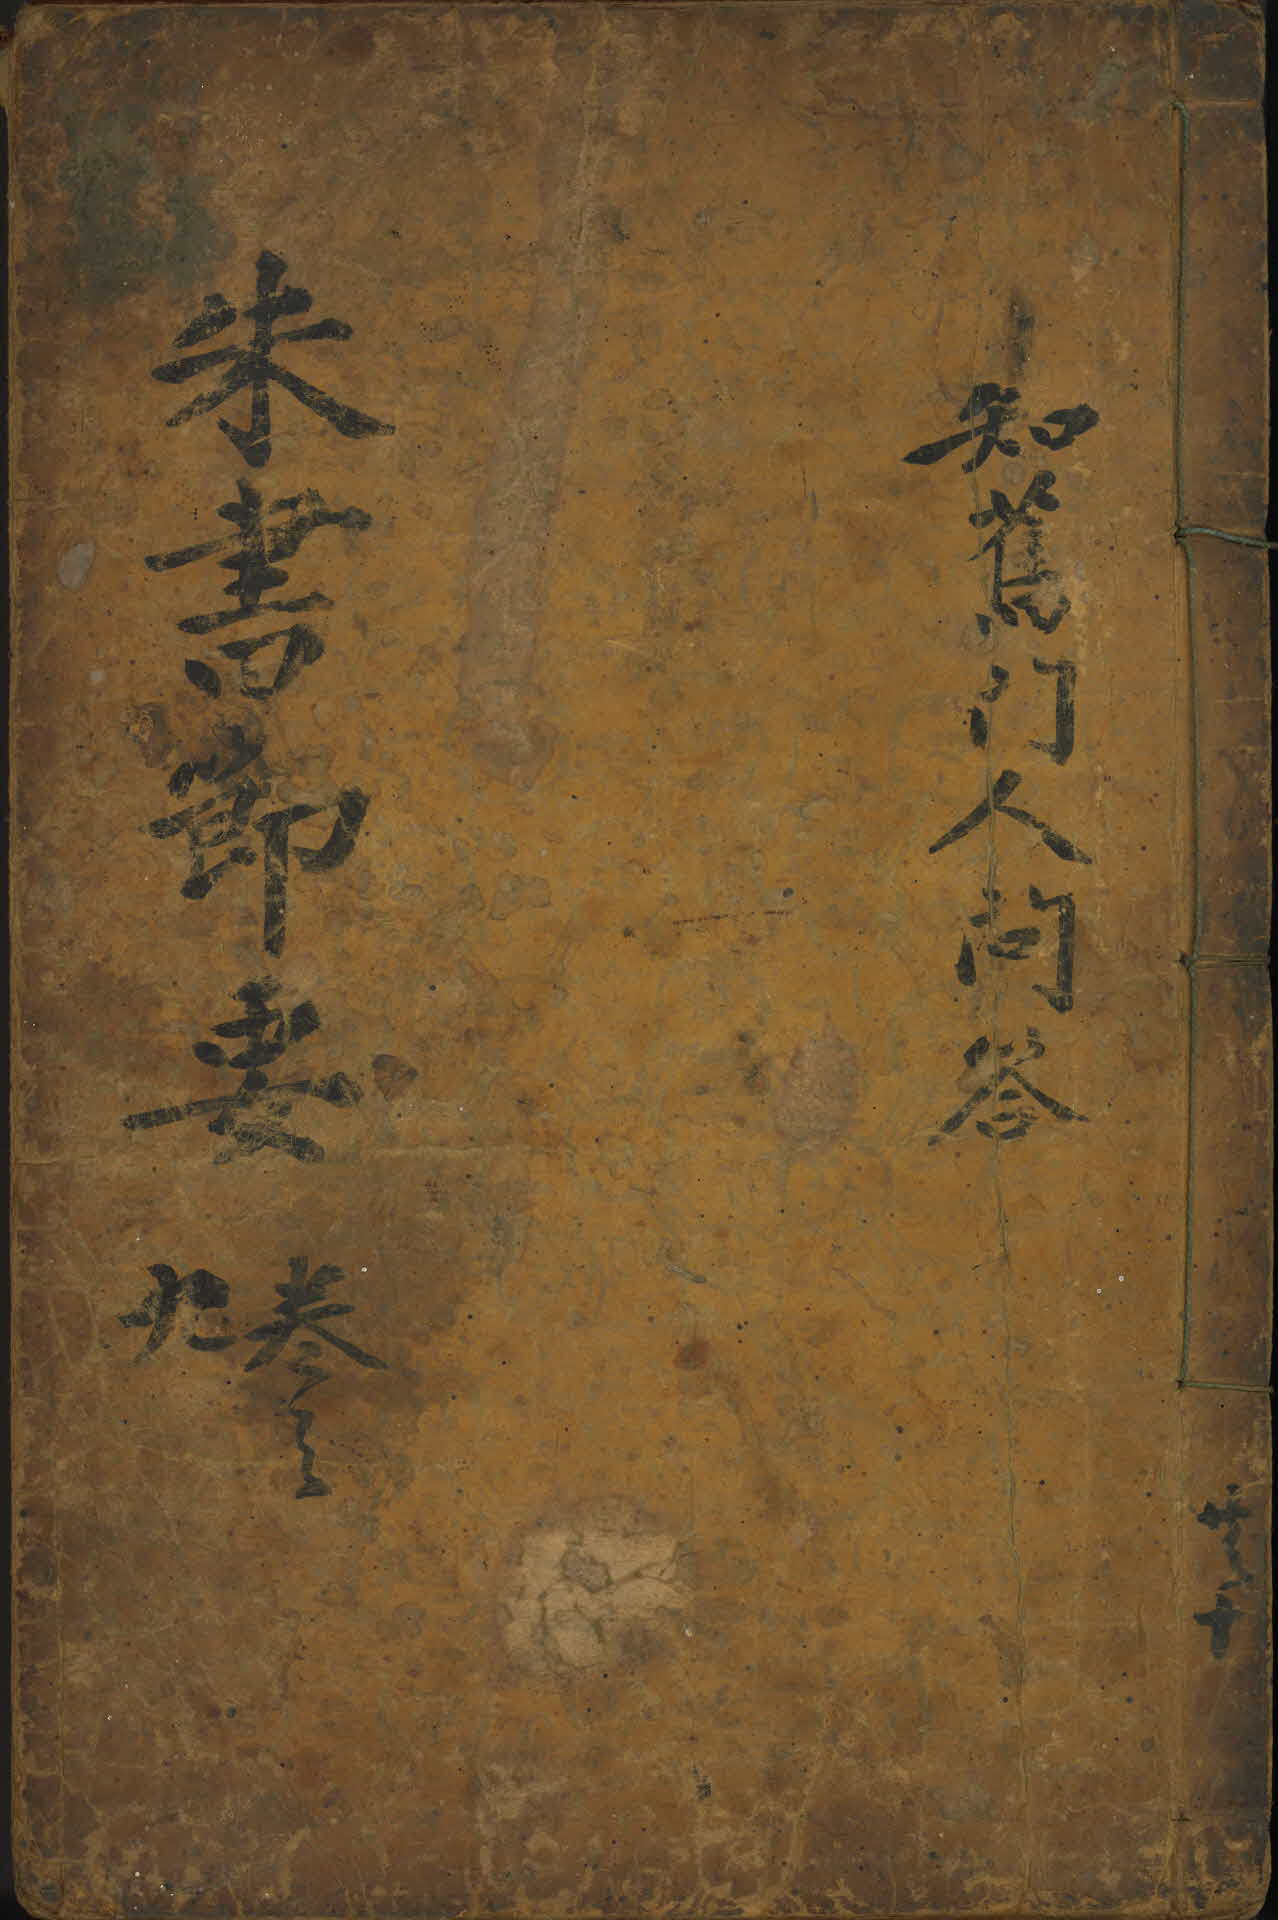 知舊門人問答
朱書節要
卷之
九
共十